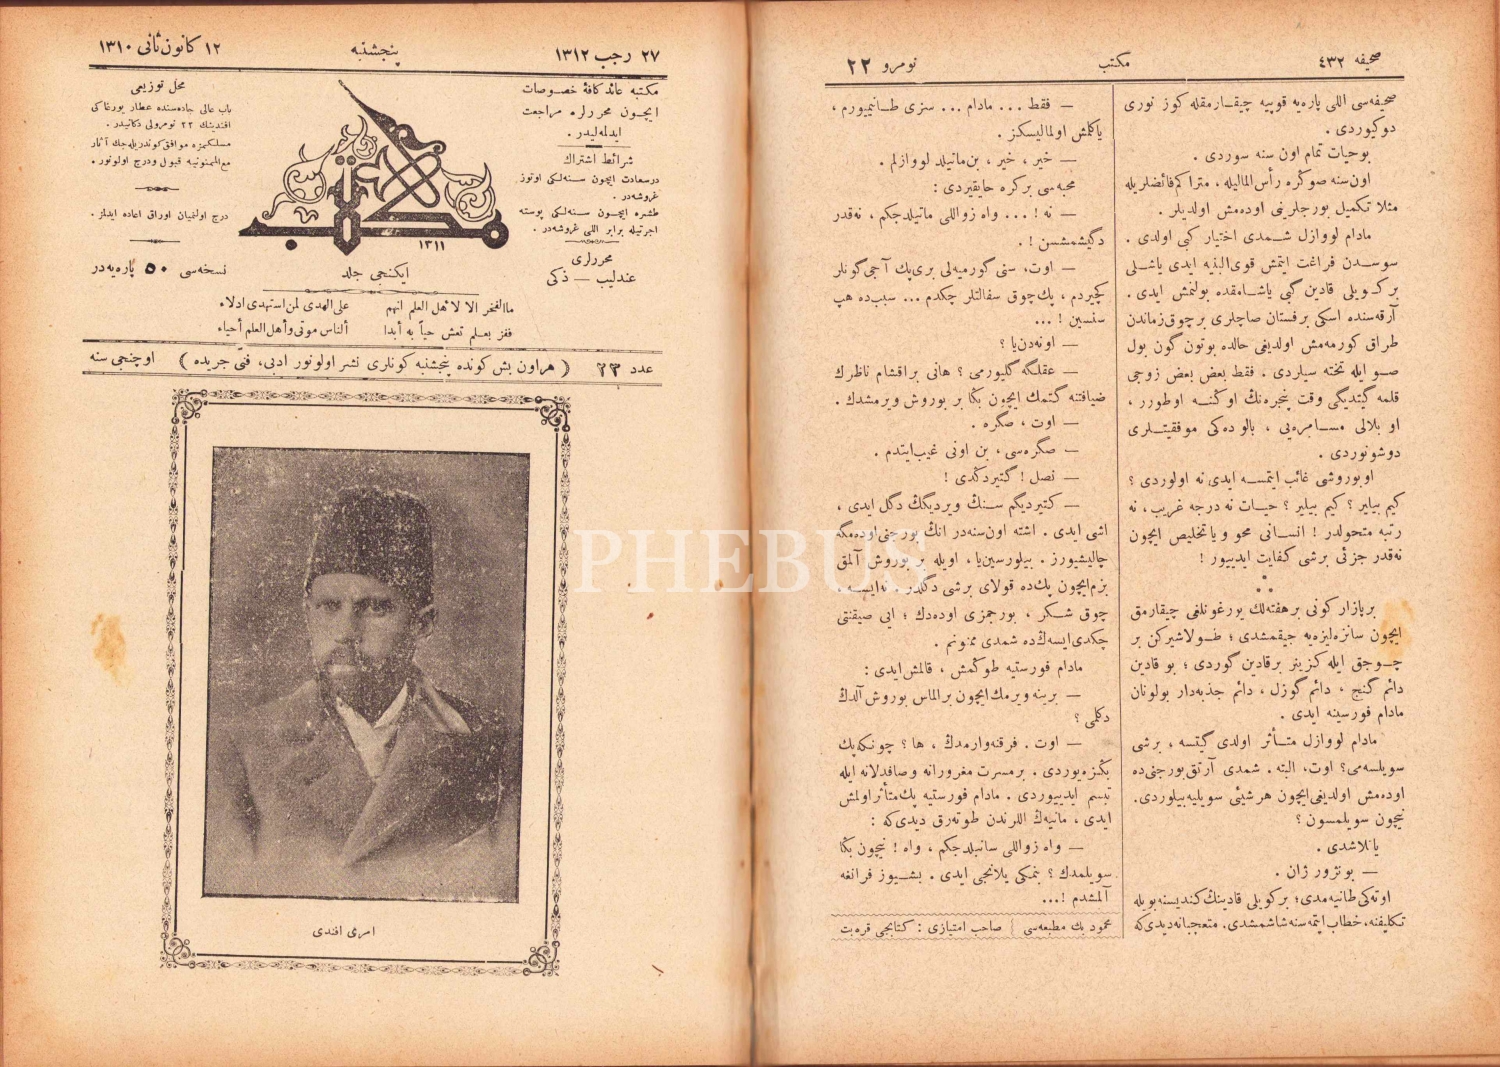 صحیفه ٤٣٢
مكتب
نومرو ٢٢
صحیفه‌سی اللی پاره‌یه قوپیه چیقارمقله كوز نوری
دوكیوردی .
بوحیات تمام اون سنه سوردی .
اون سنه صوكره رأس المالیله ، متراكم فائضلریله
مثلا تكمیل بورجلرینی اوده‌مش اولدیلر .
مادام لووازل شمدی اختیار كبی اولدی .
سوسدن فراغت ایتمش قوی البنیه ایدی یاشلی
بركویلی قادین گبی یاشامقده بولنمش ایدی .
آرقه‌سنده اسكی برفستان صاچلری برچوق زماندن
طراق كورمه‌مش اولدیغی حالده بوتون گون بول
صو ایله تخته سیلردی . فقط بعض بعض زوجی
قلمه گیتدیگی وقت پنجره‌نك اوكنه اوطورر ،
او بلالی مسامره‌یی ، بالوده‌كی موفقیتلری
دوشونوردی .
اوبوروشی غائب ایتمسه ایدی نه اولوردی ؟
كیم بیلیر ؟ كیم بیلیر ؟ حیات نه درجه غریب ، نه
رتبه متحولدر ! انسانی محو ویا تخلیص ایچون
نه‌قدر جزئی برشی كفایت ایدییور !
برپازار كونی برهفته‌لك یورغونلغی چیقارمق
ایچون شانزه‌لیزه‌یه چیقمشدی ؛ طولاشیركن بر
چوجق ایله كزینیر برقادین گوردی ؛ بو قادین
دائم گنج ، دائم گوزل ، دائم جذبه‌دار بولونان
مادام فورستیه ایدی .
مادام لووازل متأثر اولدی گیتسه ، برشی
سویلسه‌می؟ اوت، البته . شمدی آرتق بورجنی‌ده
اوده‌مش اولدیغی ایچون هر شیئی سویلیه بیلوردی.
نیچون سویلمسون ؟
یانلاشدی .
— بونژور ژان .
اوته‌كی طانیه‌مدی؛ بركویلی قادینك كندیسنه بویله
تكلیفنه، خطاب ایتمه‌سنه شاشمشدی. متعجبانه دیدی‌كه
— فقط ... مادام ... سزی طانیمیورم ،
یاكلش اولمالیسكز .
— خیر ، خیر ، بن ماتیلد لووازلم .
محبه‌سی بركره حایقیردی :
— نه ! ... واه زواللی ماتیلدجكم ، نه‌قدر
دگیشمشسن ! .
— اوت، سنی گورمیه‌لی بری‌پك آجی گونلر
كچیردم ، پك چوق سفالتلر چكدم ... سبب‌ده هپ
سنسین ! ...
— اونه‌دن‌یا ؟
— عقلگه گلیورمی ؟ هانی براقشام ناظرك
ضیافتنه گتمك ایچون بكا بر بوروش ویرمشدك .
— اوت ، صگره .
— صگره‌سی ، بن اونی غیب‌ایتدم .
— نصل ! گتیردكدی !
— كتیردیگم سنك ویردیگك دگل ایدی ،
اشی ایدی . اشته اون سنه‌در انك بورجنی اوده‌مگه
چالیشیورز . بیلورسین‌یا ، اویله بر بوروش آلمق
بزم ایچون پك‌ده قولای برشی دگلدر . نه ایسه ،
چوق شكر ، بورجمزی اوده‌دك ؛ ایی صیقنتی
چكدی ایسه‌ك‌ده شمدی ممنونم .
مادام فورستیه طوكمش ، قالمش ایدی :
— یرینه ویرمك ایچون برالماس بوروش آلدك
دكلمی ؟
— اوت . فرقنه وارمدك ، ها ؟ چونكه پك
بكزه‌یوردی . برمسرت مغرورانه وصافدلانه ایله
تبسم ایدییوردی . مادام فورستیه پك متأثر اولمش
ایدی ، ماتیه‌ك اللرندن طوته‌رق دیدی‌كه :
— واه زواللی ماتیلدجكم ، واه ! نیچون بكا
سویلمدك ؟ بنمكی یلانجی ایدی . بشیوز فرانغه
آلمشدم ! ...
محمود بك مطبعه‌سی { صاحب امتیازی : كتابجی قره‌بت
٢٧ رجب ١٣١٢
پنجشنبه
١٢ كانون ثانی ١٣١٠
مكتبه عائد كافهٔ خصوصات
ایچون محررلره مراجعت
ایدلمه‌لیدر .
شرائط اشتراك
درسعادت ایچون سنه‌لكی اوتوز
غروشدر .
طشره ایچون سنه‌لكی پوسته
اجرتیله برابر اللی غروشدر .
محررلری
عندلیب — ذكی
مكتب
١٣١١
ایكنجی جلد
محل توزیعی
باب عالی جاده‌سنده عطار یورغاكی
افندینك ٢٢ نومرولی دكانیدر .
مسلكمزه موافق كوندریله‌جك آثار
مع الممنونیه قبول ودرج اولونور .
درج اولنمیان اوراق اعاده ایدلز .
نسخه‌سی ٥٠ پاره‌یه‌در
ماالفخر الا لاهل العلم انهم
علی الهدی لمن استهدی ادلاء
ففز بعلم تعش حیاً به أبدا
ألناس موتی وأهل العلم أحیاء
عدد ٢٣
( هراون بش كونده پنجشنبه كونلری نشر اولونور ادبی، فنی جریده )
اوچنجی سنه
امری افندی
PHEBUS